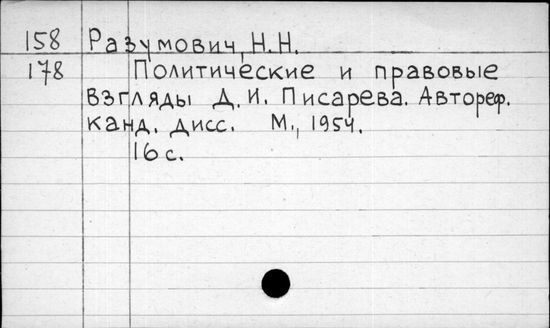 158 Разумович, Н.Н.
178 Политические и правовые
взгляды Д.И. Писарева. Автореф.
канд. дисс. М., 1954.
16 с.